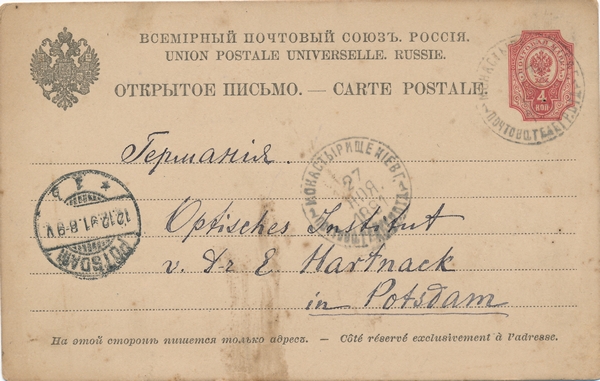 ВСЕМІРНЫЙ ПОЧТОВЫЙ СОЮЗЪ. РОССІЯ.
UNION POSTALE UNIVERSELLE. RUSSIE.
ОТКРЫТОЕ ПИСЬМО. — CARTE POSTALE.
ПОЧТОВАЯ МАРКА
4
КОП
Германія.
МОНАСТЫРИЩЕ КІЕВ. Г.
27
НОЯ
1891
Optisches Institut
12.12.91.8-9V.
POTSDAM
v. D-r E Hartnack
in Potsdam
На этой сторонѣ пишется только адресъ. — Côté réservé exclusivement à l'adresse.